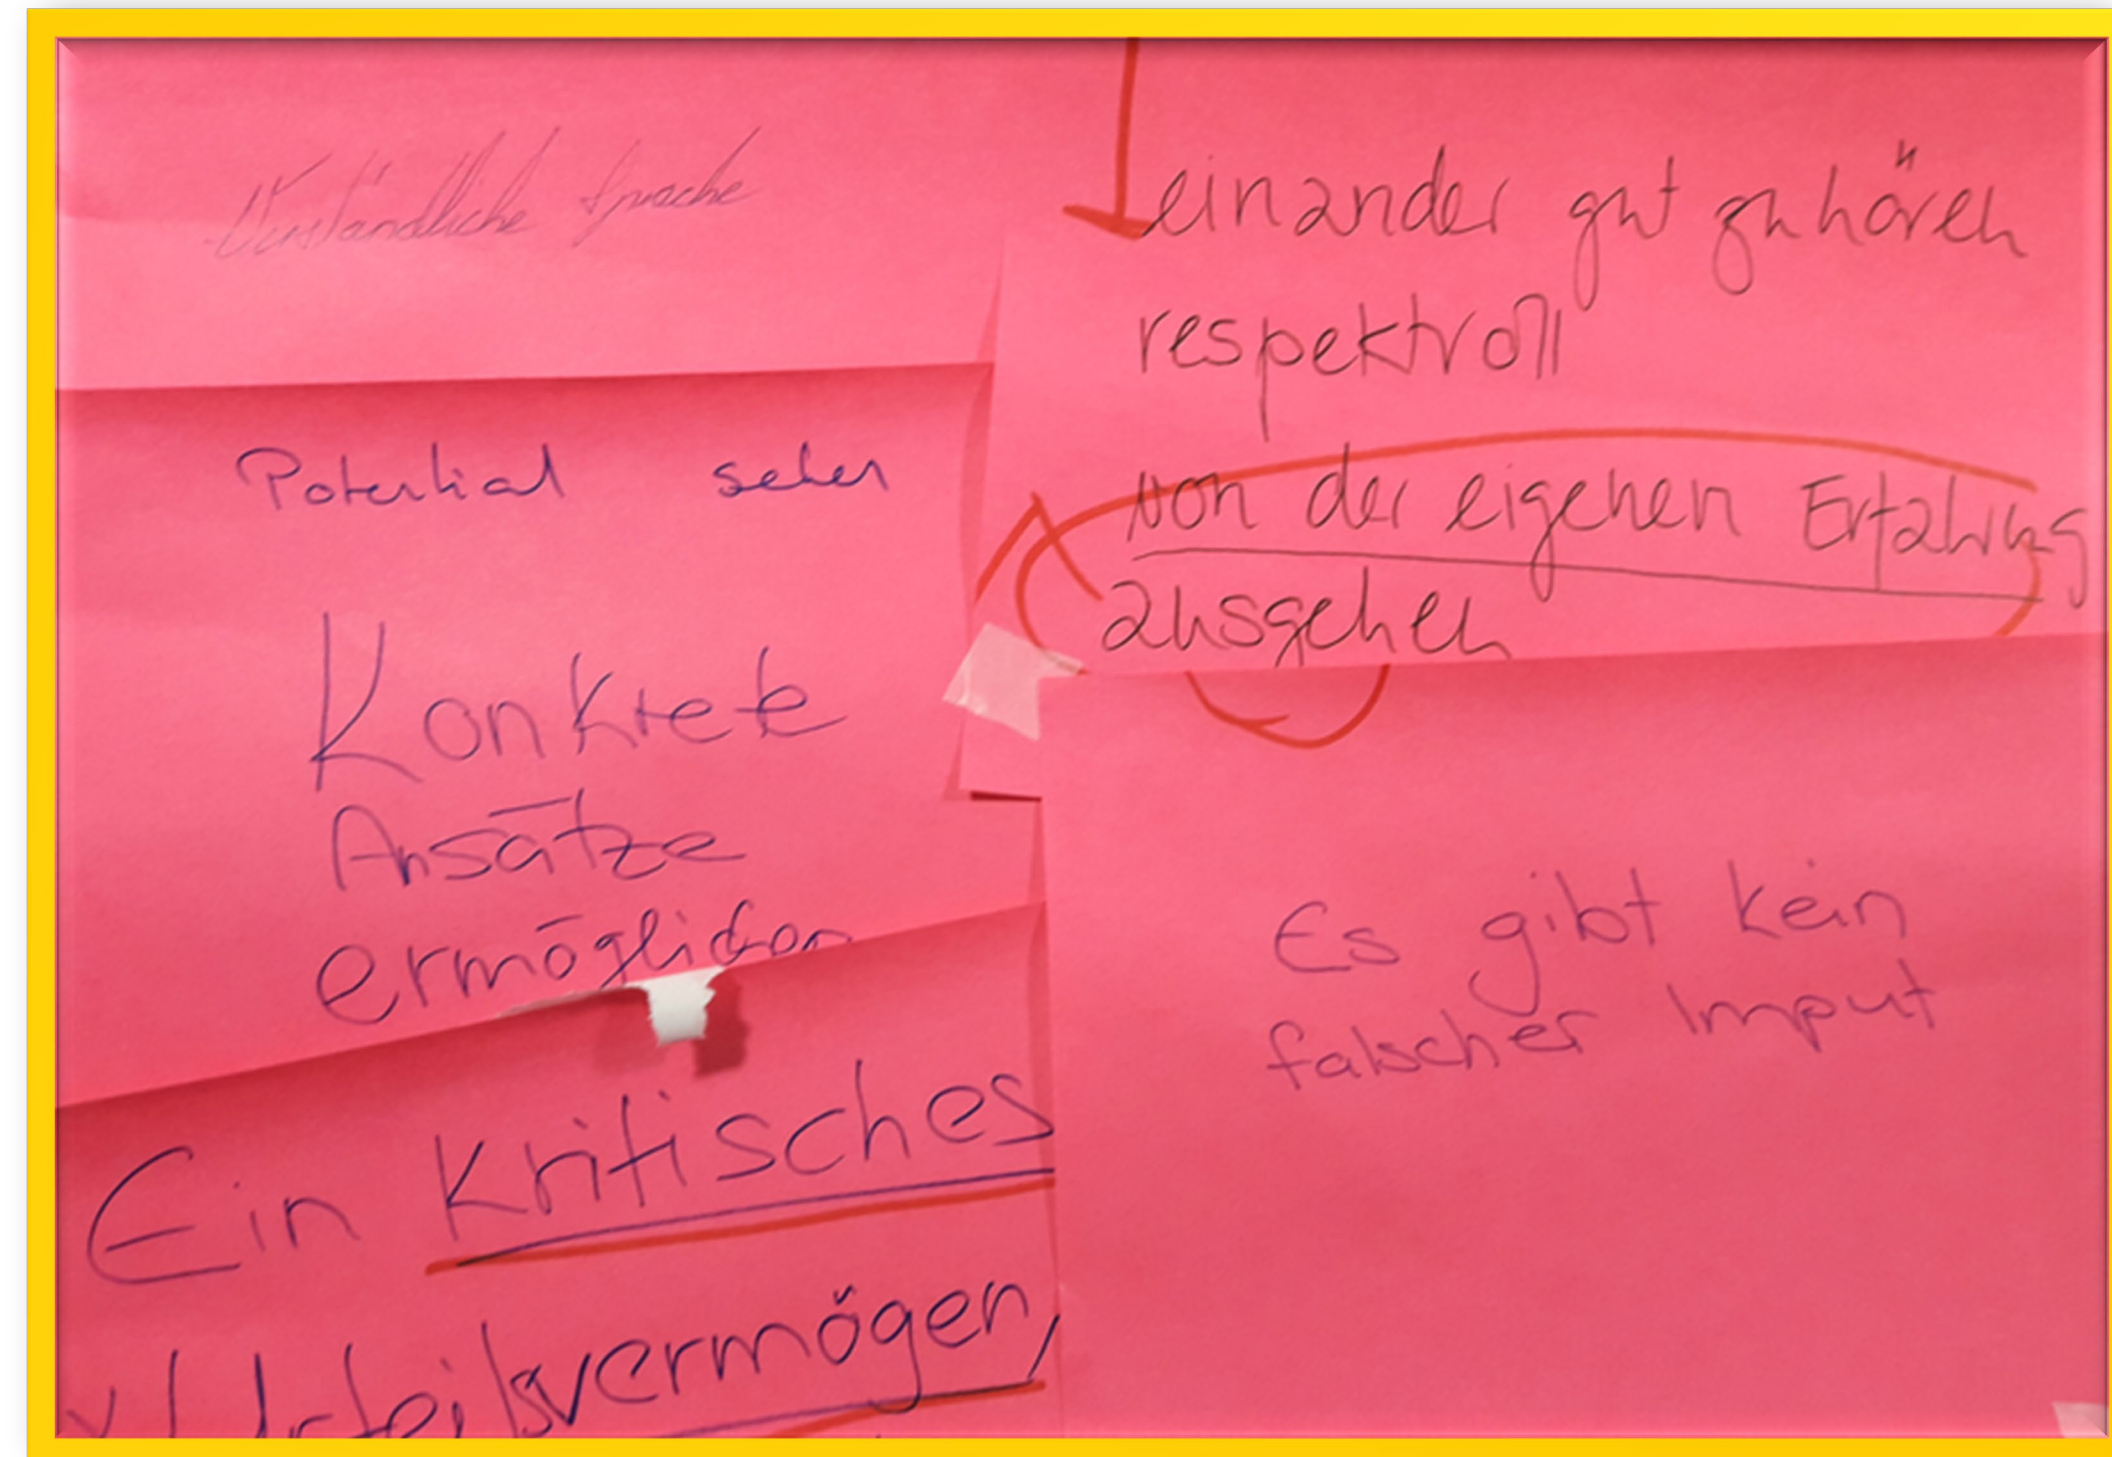 Verständliche Sprache
Potential sehen
Konkrete
Ansätze
ermöglichen
Ein kritisches
Urteilsvermögen,
einander gut zuhören
respektvoll
von der eigenen Erfahrung
ausgehen
Es gibt kein
falscher Imput